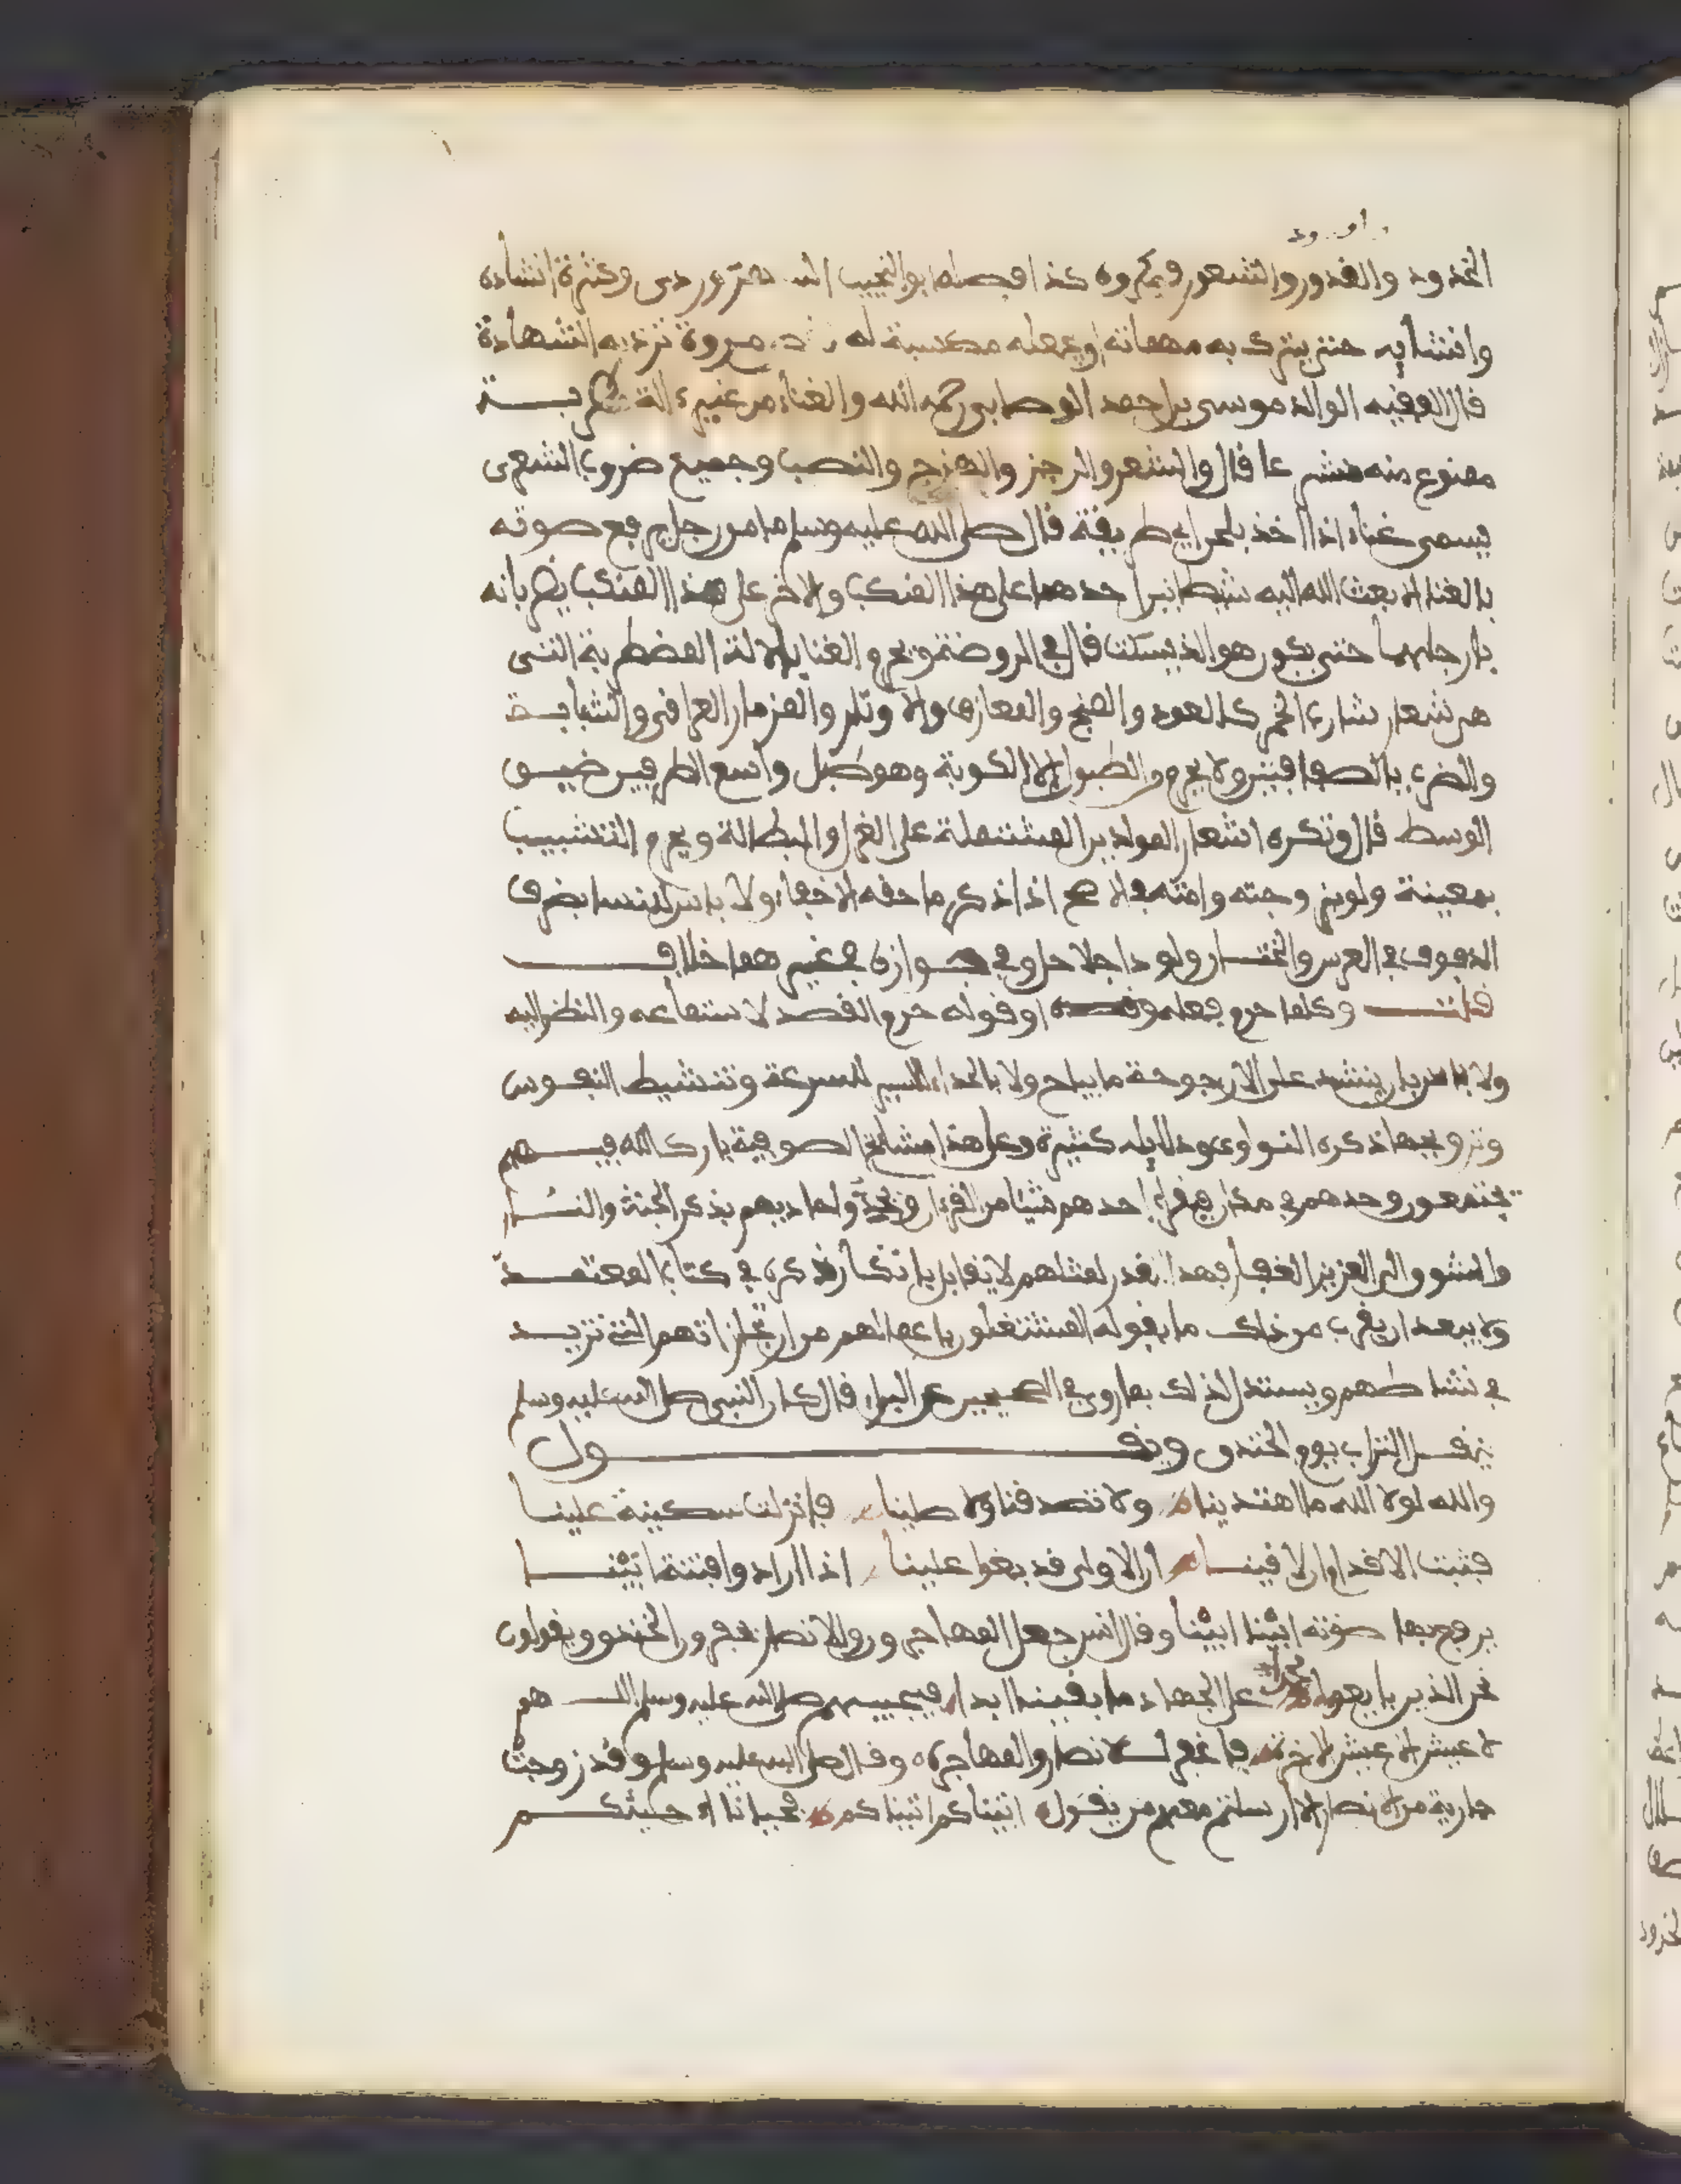 الخدود والقدود والشعور فمكروه كذا فصله ابو النجيب السهروردى وكثرة انشاده
وانشائه حتى يترك به مهماته او يجعله مكسبة له مروة ترد به الشهادة
قال الفقيه الوالد موسى بن احمد الوصابى رحمه الله والغناء من غير ءالة
ممنوع منه شرعا قال والشعر والرجز والهزج والنصب وجميع ضروب الشعرى
يسمى غناء اذا اخذ بلحن اي طريقة قال صلى الله عليه وسلم ما من رجل يرفع صوته
بالغناء الا بعث الله اليه شيطانين احدهما على هذا المنكب والاخر على هذا المنكب يضربانه
بارجلهما حتى يكون هو الذي يسكت قال فى الروضة ويحرم الغنا بالالة المطربة التى
هى شعار شاربى الخمر كالعود والصنج والمعازف والاوتار والمزمار العراقى والشبابة
والضرب بالصفاقتين ولا يحرم من الطبول الا الكوبة وهو طبل واسع الطرفين ضيق
الوسط قال وتكره اشعار المولدين المشتملة على الغزل والبطالة ويحرم التشبيب
بمعينة ولو بزوجته وامته اذا ذكر ما حقه الاخفاء ولا باس للنسا بضرب
الدفوف فى العرس والختان ولو داجلا حل وفى جوازه فى غيرهما خلاف
قلت وكلما حرم فعله او قوله حرم القصد لاستماعه والنظر اليه
ولا باس بان ينشد على الارجوحة ما يباح ولا بالحداء للسير للسرعة وتنشيط النفوس
وترويحها ذكره النواوى ودلايله كثيرة وعلى هذا مشايخ الصوفية بارك الله فيهم
يجتمعون وحدهم فى مكان فيقرا احدهم شيئا من القرءان حاديهم بذكر الجنة والنار
والشوق الى العزيز الغفار فهذا القدر لمثلهم لا يقابل بانكار ذكره فى كتاب المعتمد
ولا يبعد ان يقرب من ذلك ما يقوله المشتغلون باعمالهم من ارتجازاتهم التى تزيد
فى نشاطهم ويستدل لذلك بما روى فى الصحيحين عن البراء قال كان النبى صلى الله عليه وسلم
ينقل التراب يوم الخندق ويقول
والله لولا الله ما اهتدينا ولا تصدقنا ولا صلينا فانزلن سكينة علينا
فثبت الاقدام ان لاقينا ان الاولى قد بغوا علينا اذا ارادوا فتنة ابينا
يرفع بها صوته ابينا ابينا وقال انس جعل المهاجرون والانصار يحفرون الخندق ويقولون
نحن الذين بايعوا محمدا على الجهاد ما بقينا ابدا فيجيبهم صلى الله عليه وسلم اللهم
لا عيش الا عيش الاخرة فاغفر للانصار والمهاجره وقال صلى الله عليه وسلم وقد زوجت
جارية من الانصار الا ارسلتم معهم من يقول اتيناكم اتيناكم فحيانا وحيئكم